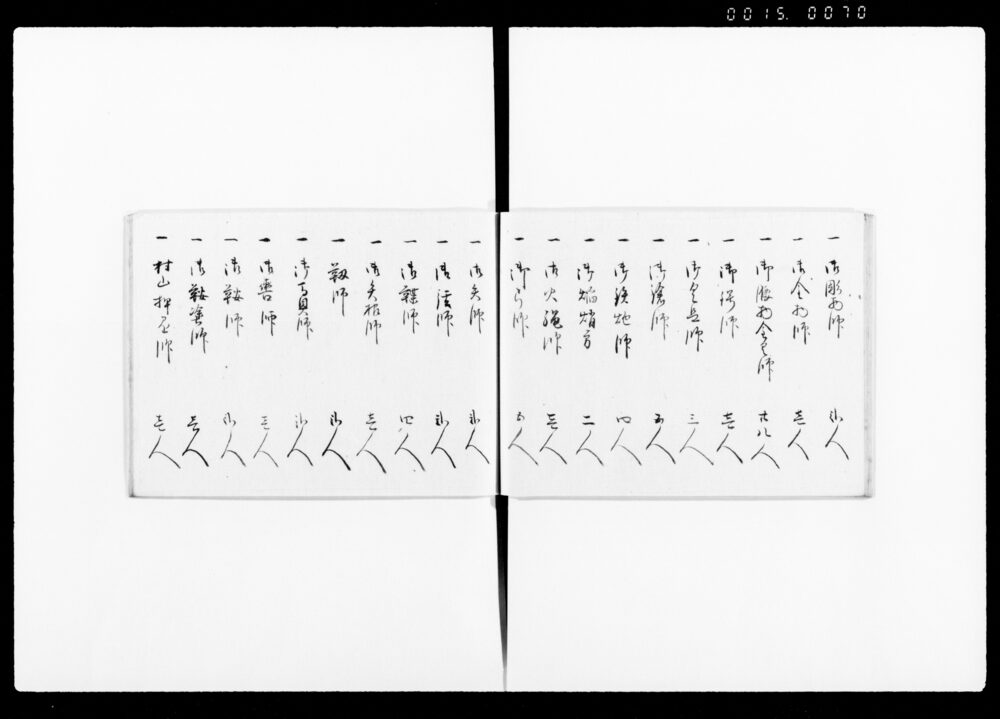 0015. 0070
一 御彫物師 弐人
一 御金物師 壱人
一 御腰物金具師 廿八人
一 御師 壱人
一 御具足師 三人
一 御塗師 五人
一 御鉄炮師 四人
一 御焔焇方 二人
一 御火縄師 壱人
一 御弓師 五人
一 御矢師 弐人
一 御弦師 弐人
一 御鞢師 四人
一 御矢根師 壱人
一 靱師 弐人
一 御貝師 弐人
一 御轡師 三人
一 御鞍師 弐人
一 御鞍塗師 壱人
一 村山師 壱人